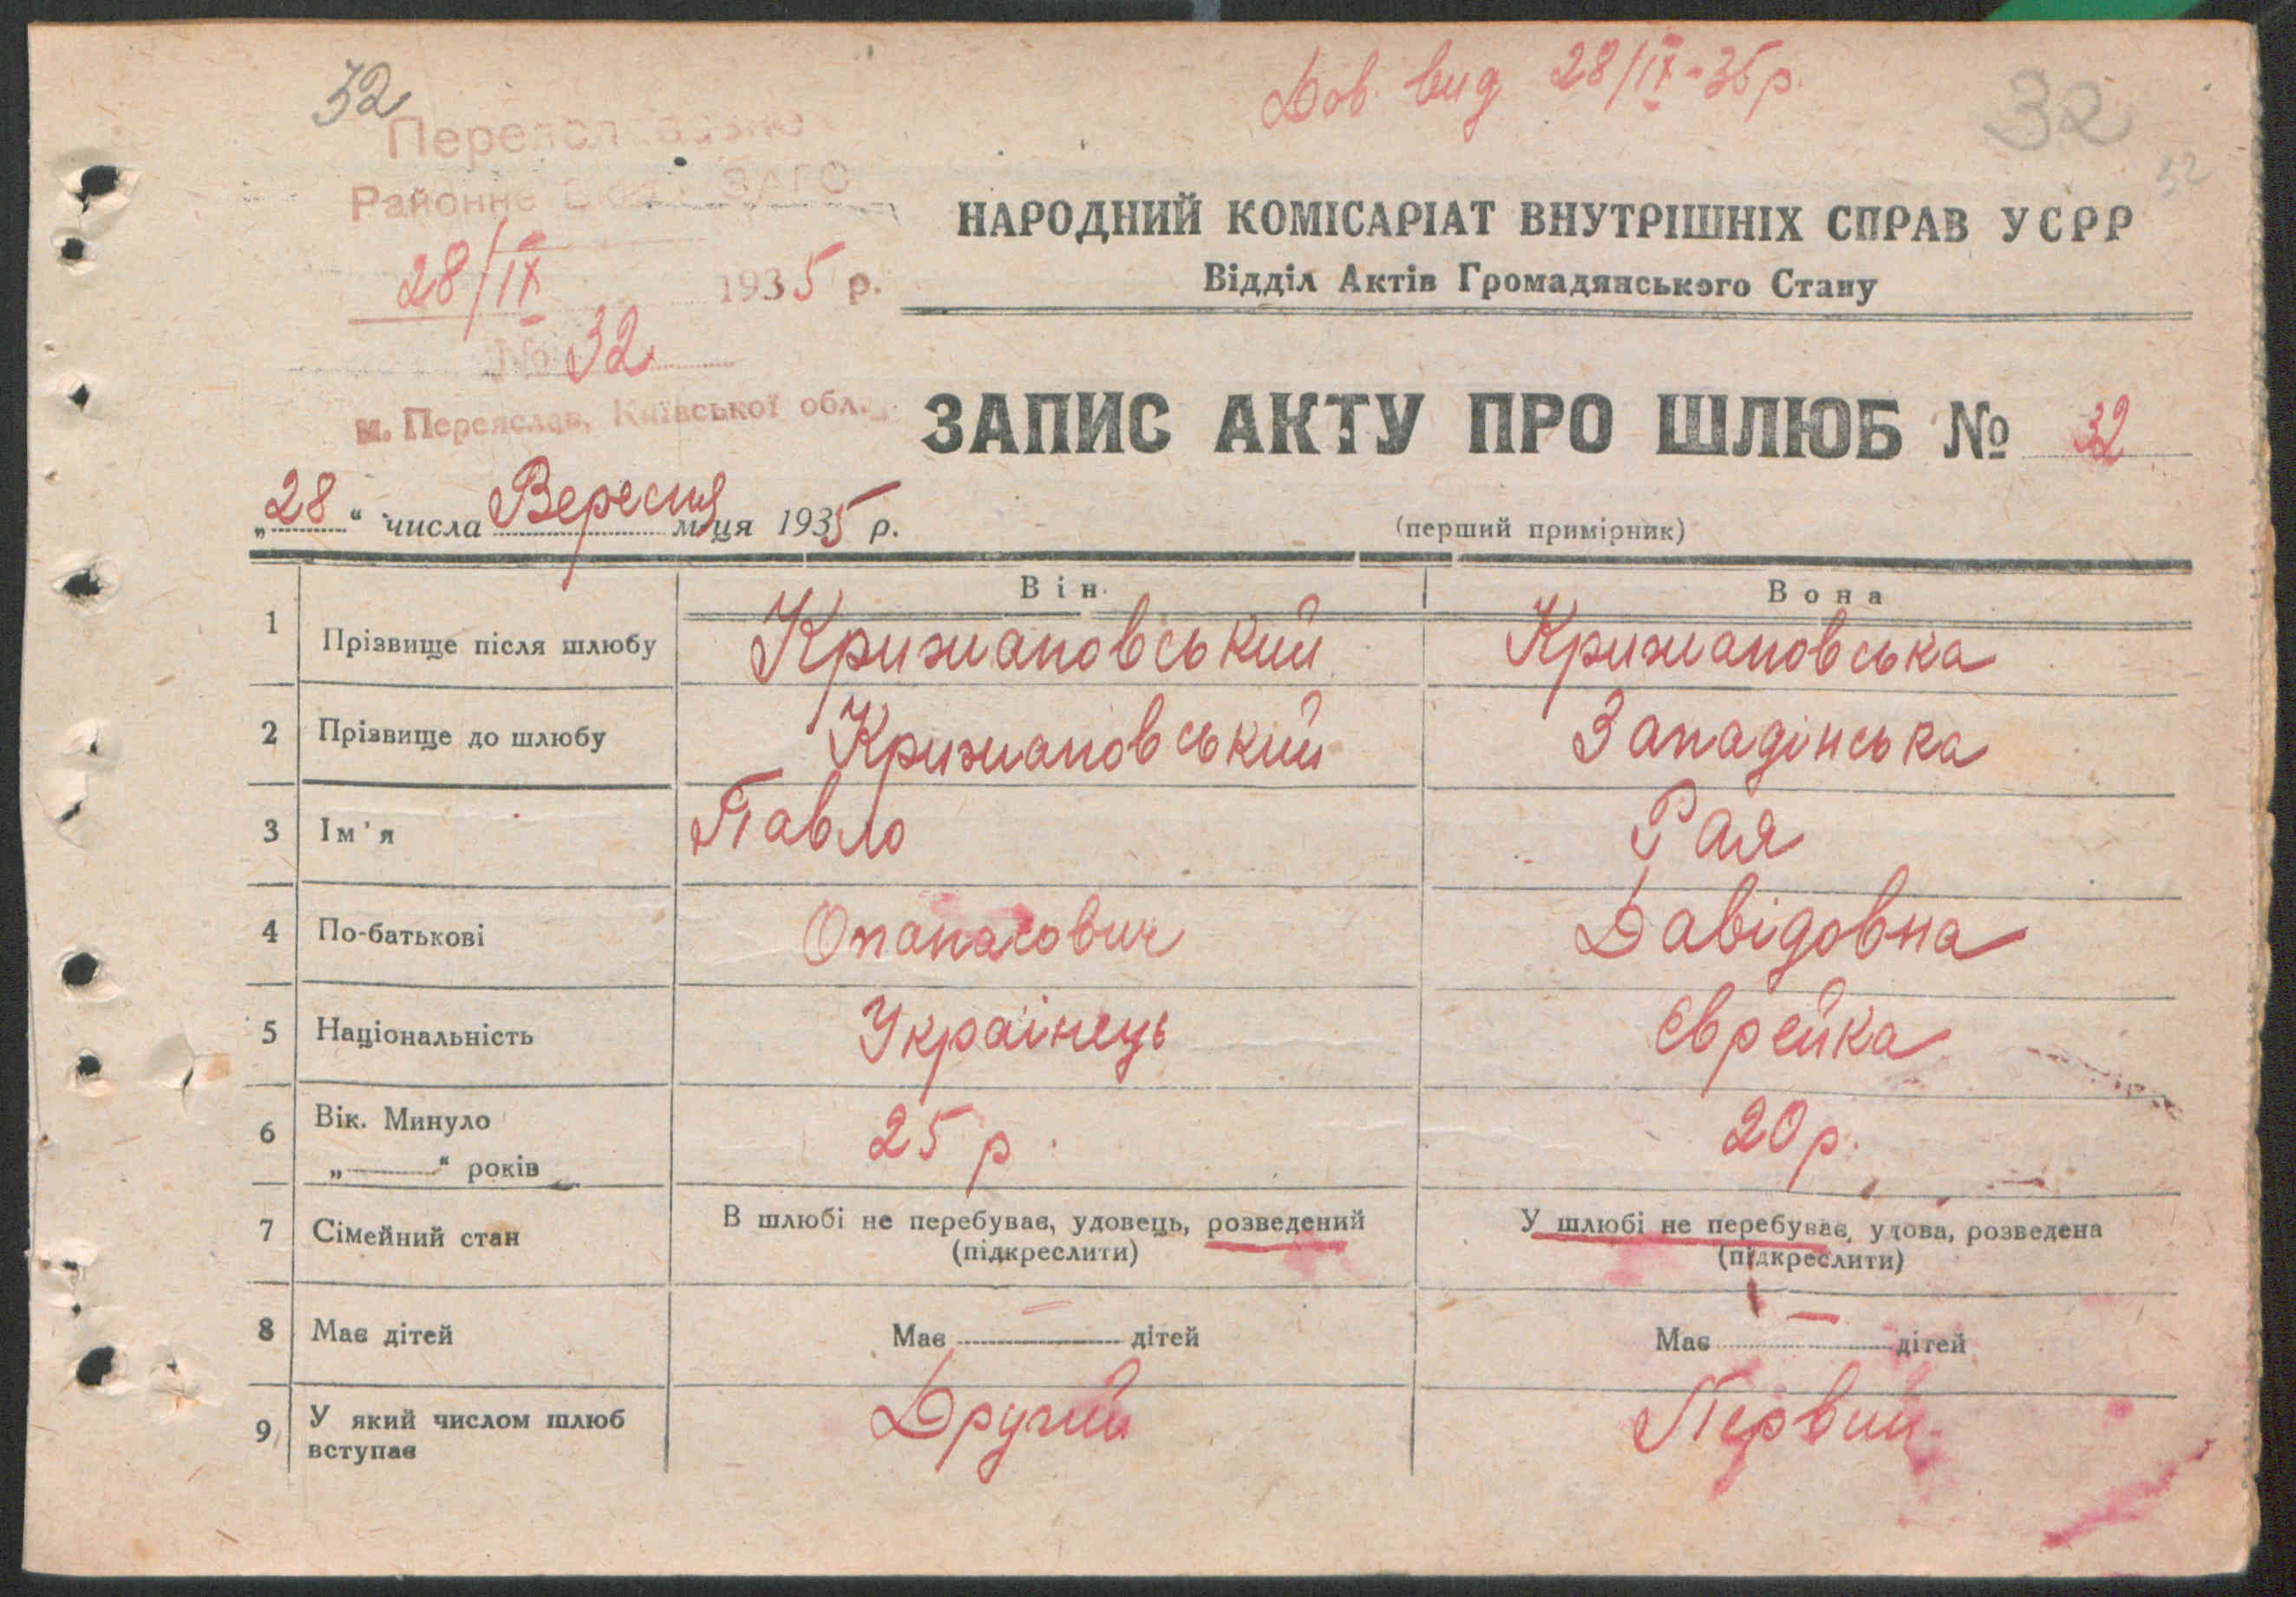 32
Дов. вид 28/IX-35 р.
32
32
Переяславське
Районне Бюро ЗАГС
28/IX 1935 р.
№ 32
м. Переяслав, Київської обл.
НАРОДНИЙ КОМІСАРІАТ ВНУТРІШНІХ СПРАВ УСРР
Відділ Актів Громадянського Стану
ЗАПИС АКТУ ПРО ШЛЮБ № 32
„28“ числа Вересня м-ця 1935 р.
(перший примірник)
Він Вона
1 Прізвище після шлюбу Крижановський Крижановська
2 Прізвище до шлюбу Крижановський Западінська
3 Ім'я Павло Рая
4 По-батькові Опанасович Давідовна
5 Національність Українець Єврейка
6 Вік. Минуло
„ “ років 25 р. 20 р.
7 Сімейний стан В шлюбі не перебуває, удовець, розведений У шлюбі не перебуває, удова, розведена
(підкреслити) (підкреслити)
8 Має дітей Має — дітей Має — дітей
9 У який числом шлюб
вступає Другий Первий